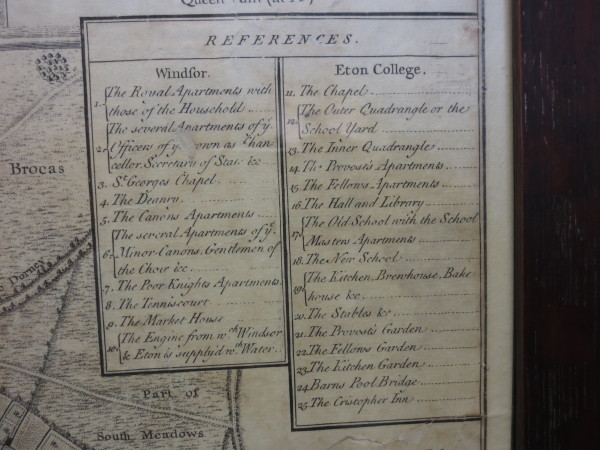 REFERENCES.
Windsor.
1. The Royal Apartments with
those of the Household
2. The several Apartments of ye.
Officers of ye own as Chan
cellor, Secretary of Stat. &c
3. St. Georges Chapel
4. The Deanry
5. The Canons Apartments
6. The several Apartments of ye.
Minor-Canons, Gentlemen of
the Choir &c
7. The Poor Knights Apartments
8. The Tenniscourt
9. The Market House
10. The Engine from wch. Windsor
& Eton is supply'd wth. Water
Eton College.
11. The Chapel
12. The Outer Quadrangle or the
School Yard
13. The Inner Quadrangle
14. The Provosts Apartments
15. The Fellows Apartments
16. The Hall and Library
17. The Old School with the School
Masters Apartments
18. The New School
19. The Kitchen, Brewhouse, Bake
house &c
20. The Stables &c
21. The Provosts Garden
22. The Fellows Garden
23. The Kitchen Garden
24. Barns Pool Bridge
25. The Cristopher Inn
Brocas
Dorney
Part of
South Meadows